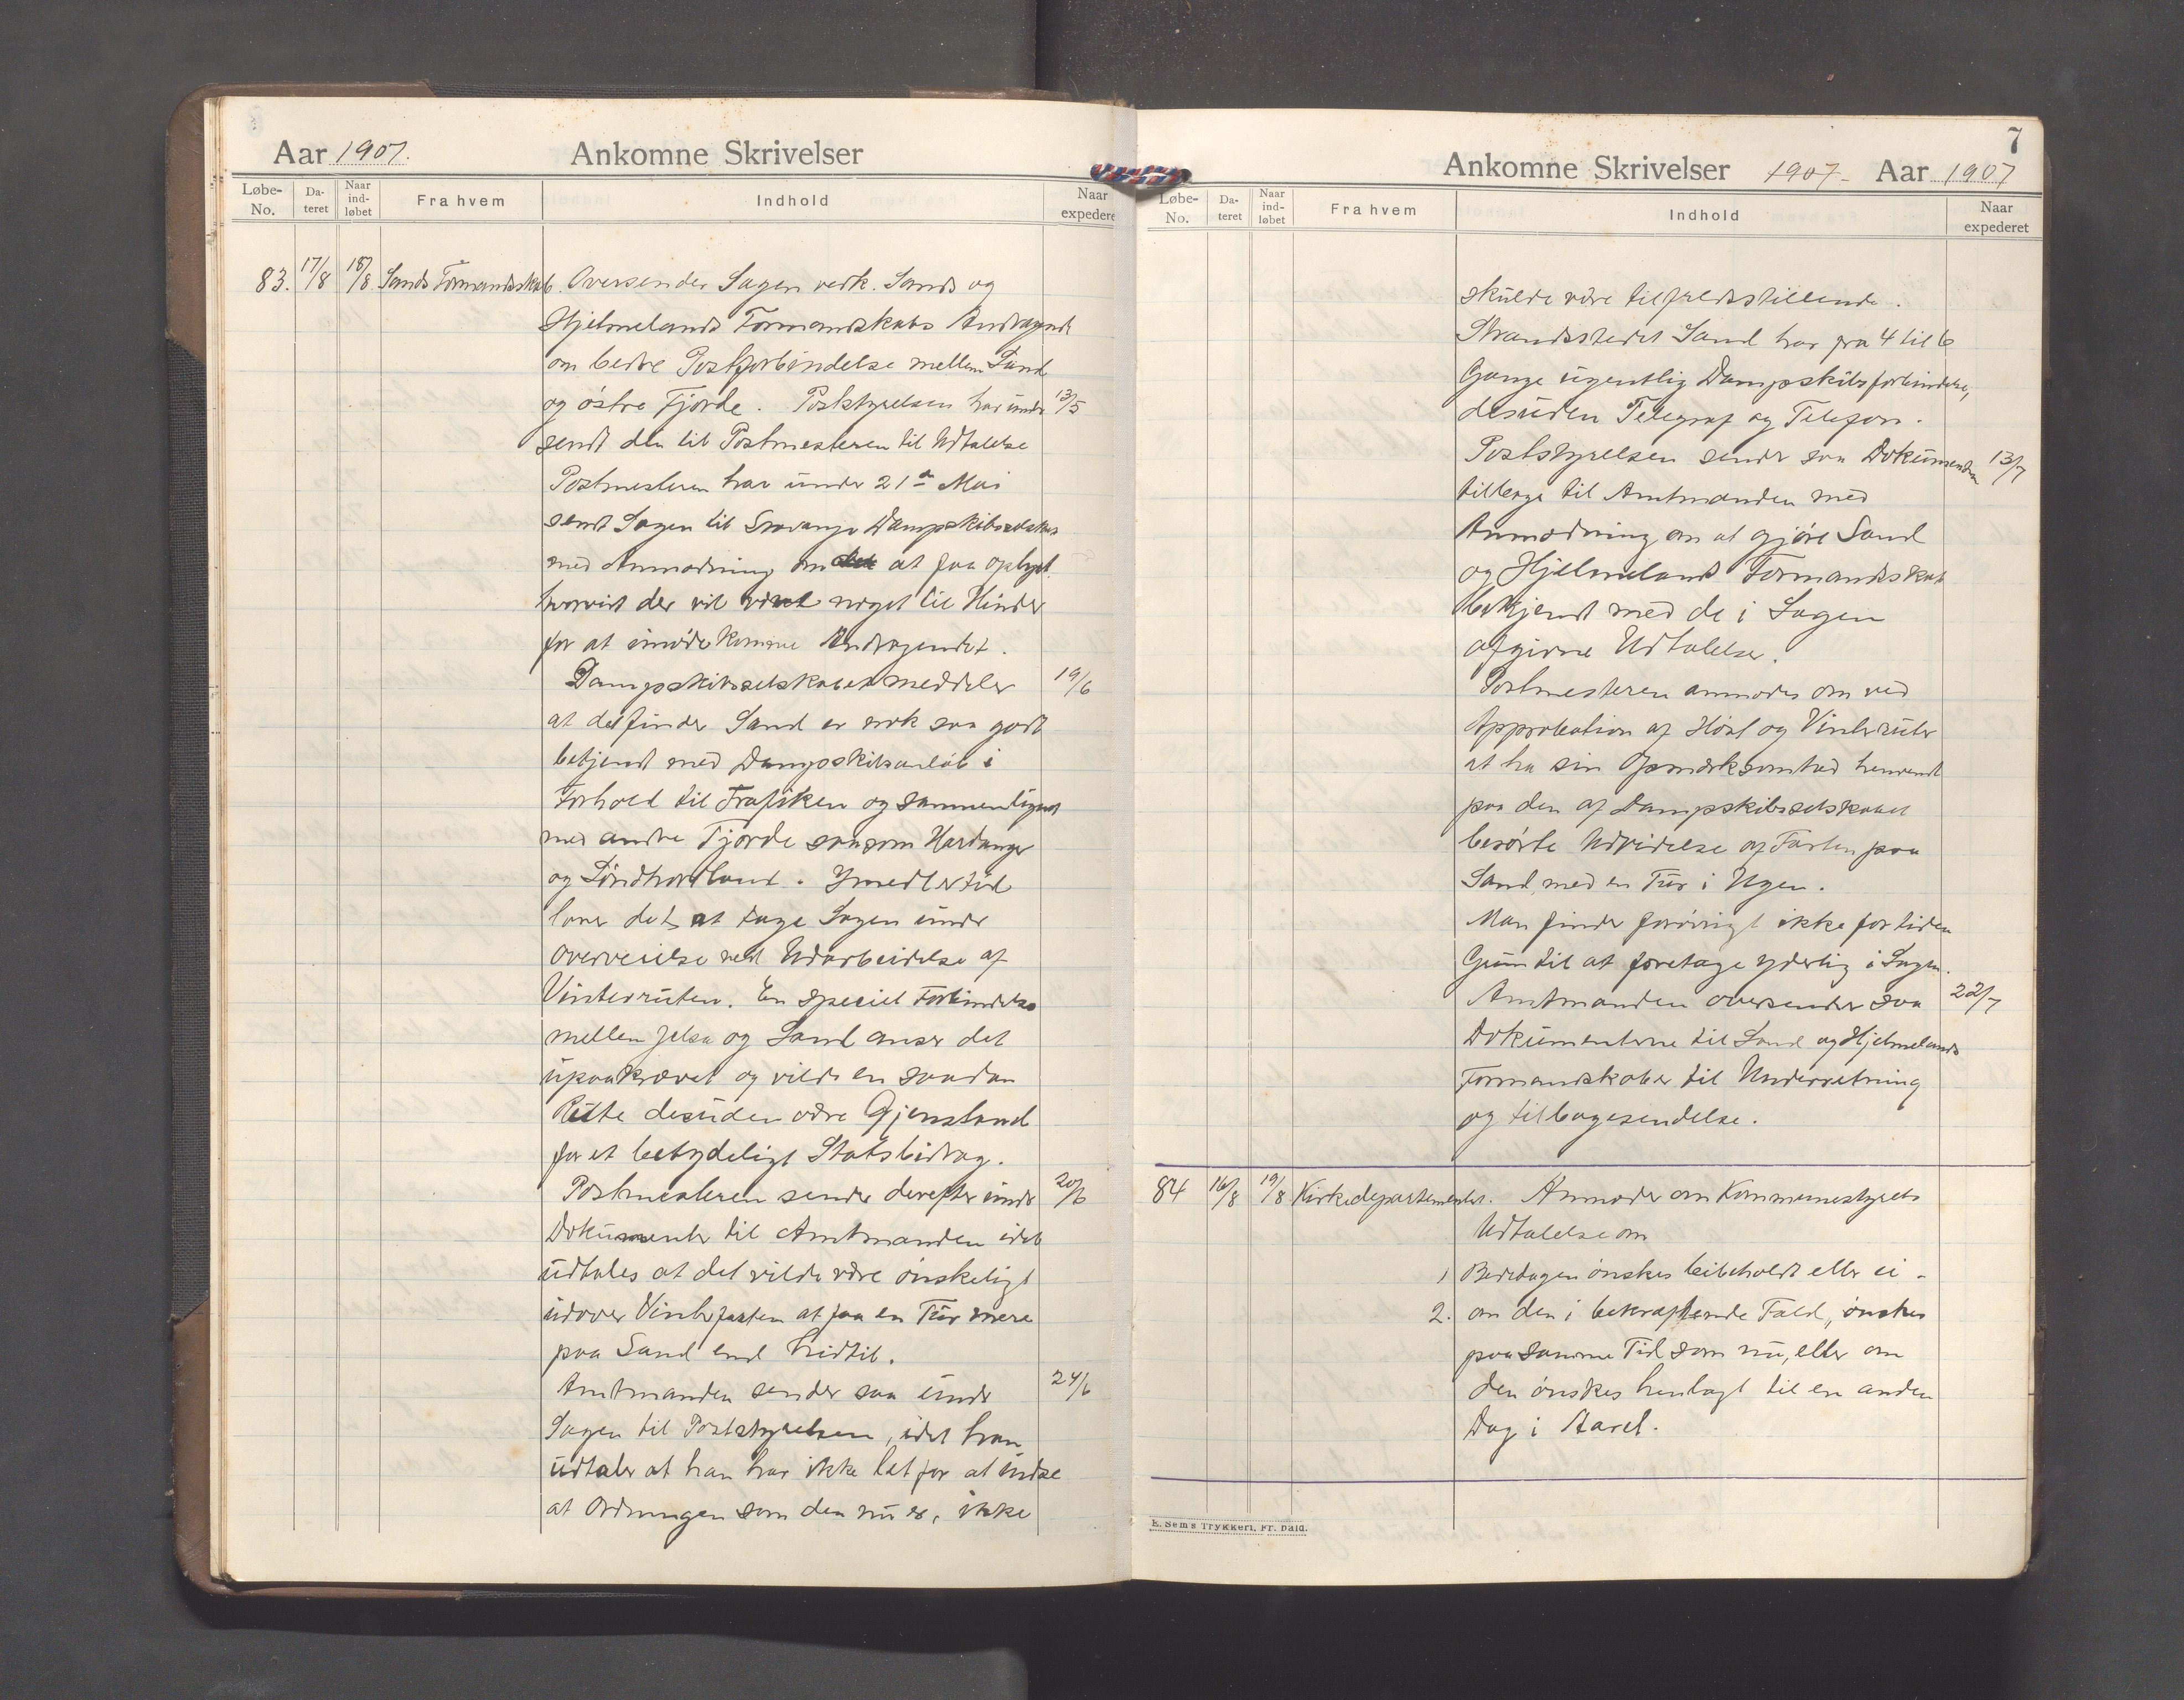 Aar 1907. Ankomne Skrivelser
Løbe-No. Da-teret Naar ind-løbet Fra hvem Indhold Naar expederet
83. 17/8 18/8 Sands Formandskab. Oversender Sagen vedk. Sands og
Hjelmelands Formandskabs Andragende
om bedre Postforbindelse mellem Sand
og østre Fjorde. Poststyrelsen har under 13/5
sendt den til Postmesteren til Udtalelse
Postmesteren har under 21de Mai
sendt Sagen til Stavanger Dampskibsselskab
med Anmodning om at faa oplyst
hvorvidt der vil være noget til Hinder
for at imødekomme Andragendet.
Dampskibsselskabet meddeler 19/6
at det finder Sand er nok saa godt
betjent med Dampskibsanløb i
Forhold til Trafiken og sammenlignet
med andre Fjorde saasom Hardanger
og Søndhordland. Ymedlertid
lover det at tage Sagen under
Overveielse ved Udarbeidelse af
Vinterruten. En speciel Forbindelse
mellem Jelsa og Sand anser det
upaakrævet og vilde en saadan
Rute desuden være Gjenstand
for et betydeligt Statsbidrag.
Postmesteren sender derefter under 20/6
Dokumenter til Amtmanden idet
udtales at det vilde være ønskeligt
udover Vinterfarten at faa en Tur mere
paa Sand end hidtil.
Amtmanden sender saa under 24/6
Sagen til Poststyrelsen, idet han
udtaler at han har ikke let for at indse
at Ordningen som den nu er, ikke
7
Ankomne Skrivelser 1907- Aar 1907
Løbe-No. Da-teret Naar ind-løbet Fra hvem Indhold Naar expederet
skulde være tilfredsstillende.
Strandstedet Sand har fra 4 til 6
Gange ugentlig Dampskibsforbindelse,
desuden Telegraf og Telefon.
Poststyrelsen sender saa Dokumenterne 13/7
tilbage til Amtmanden med
Anmodning om at gjøre Sand
og Hjelmeland Formandskab
bekjendt med de i Sagen
afgivne Udtalelser.
Postmesteren anmodes om ved
Approbation af Høst og Vinterruter
at ha sin Opmærksomhed henvendt
paa den af Dampskibsselskabet
besørte Udvidelse af Farten paa
Sand med en Tur i Ugen.
Man finder forøvrigt ikke for tiden
Grun til at foretage yderlig i Sagen.
Amtmanden oversender saa 22/7
Dokumenterne til Sand og Hjelmelands
Formandskaber til Underretning
og tilbagesendelse.
84 16/8 19/8 Kirkedepartementet. Anmoder om Kommunestyrets
Udtalelse om
1 Bededagen ønskes beibeholdt eller ei -
2. om den i bekræftende Fald, ønskes
paa samme Tid som nu, eller om
den ønskes henlagt til en anden
Dag i Aaret.
E. Sem's Trykkeri, Fr. hald.